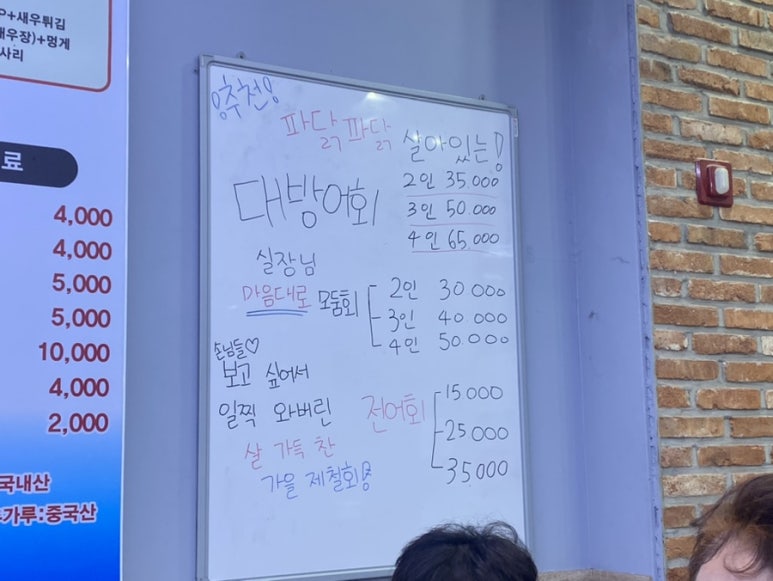 P+새우튀김
새우장)+멍게
사리
료
4,000
4,000
5,000
5,000
10,000
4,000
2,000
국내산
가루:중국산
추천
파닭파닭
살아있는!
대방어회
2인 35.000
3인 50.000
4인 65.000
실장님
마음대로 모둠회
2인 30 000
3인 40 000
4인 50 000
손님들♡
보고 싶어서
일찍 와버린
살 가득 찬
가을 제철회!
전어회
15.000
25 000
35.000